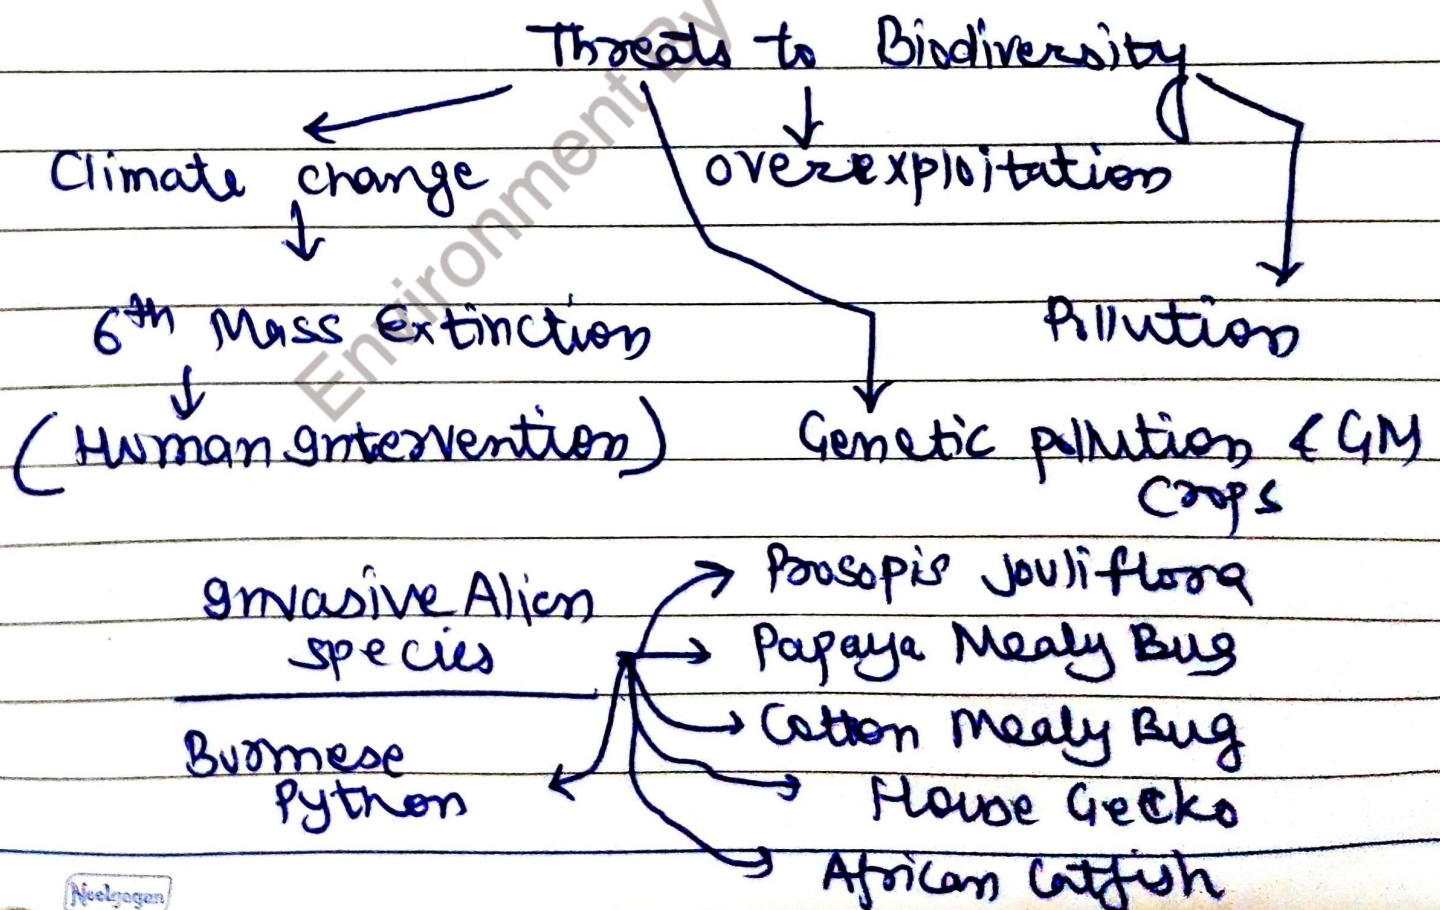 Threats to Biodiversity
Climate change
overexploitation
6th Mass Extinction
Pollution
(Human Intervention)
Genetic pollution & GM
Crops
Invasive Alien
species
Prosopis Jouliflora
Papaya Mealy Bug
Cotton Mealy Bug
Burmese
Python
House Gecko
African Catfish
Environment By
Neelgagan